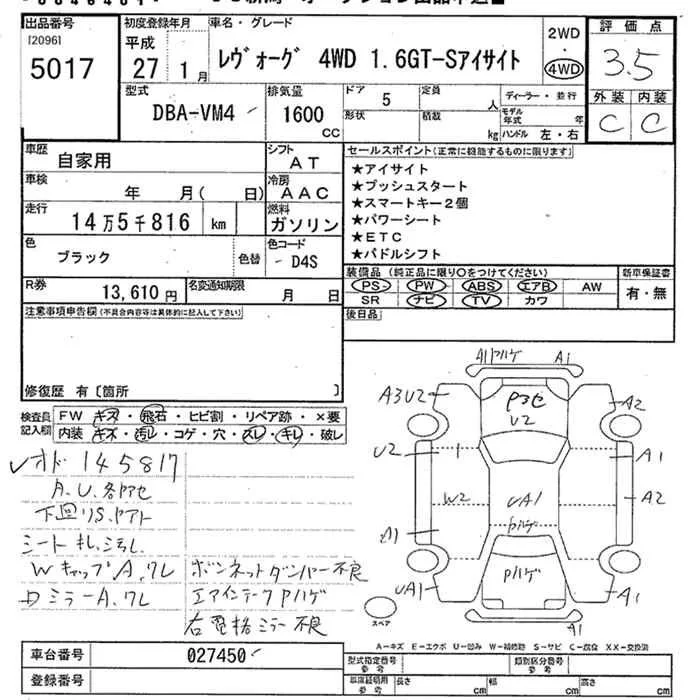 出品番号
[2096]
5017
初度登録年月
平成
27 1月
車名・グレード
レヴォーグ 4WD 1.6GT-Sアイサイト
2WD
・
4WD
評価点
3.5
外装 内装
C C
型式
DBA-VM4
排気量
1600
CC
ドア 5
形状
定員 人
積載 kg
ディーラー・並行
モデル年式 年
ハンドル 左・右
車歴
自家用
シフト
AT
車検
年 月( 日)
冷房
AAC
走行
14万5千816 km
燃料
ガソリン
色
ブラック
色替
色コード
D4S
R券
13,610円
名変通知期限
月 日
セールスポイント(正常に機能するものに限ります)
★アイサイト
★プッシュスタート
★スマートキー2個
★パワーシート
★ETC
★パドルシフト
装備品(純正品に限り○をつけてください)
PS PW ABS エアB AW
SR ナビ TV カワ
新車保証書
有・無
後日品
注意事項申告欄(不具合内容等は具体的に記入して下さい)
修復歴 有〔箇所 〕
検査員記入欄
FW キズ・飛石・ヒビ割・リペア跡・×要
内装 キズ・汚レ・コゲ・穴・スレ・キレ・破レ
レオド 145817
A.U.各アセ
下回リS.アト
シートキレ.汚レ
Wキャップ A.ワレ
ミラーA.ワレ
ボンネットダンパー不良
エアインテークPハゲ
右電格ミラー不良
A1Pハゲ A1
A3U2
A2
U2
A1
W2
UA1
Pハゲ
A2
A1
UA1
Pハゲ
A1
A1
スペア
A-キズ E-エクボ U-凹み W-補修跡 S-サビ C-腐食 XX-交換済
車台番号
027450
登録番号
型式指定番号 参考
類別区分番号 参考
車庫証明用 参考
長さ cm
幅 cm
高さ cm